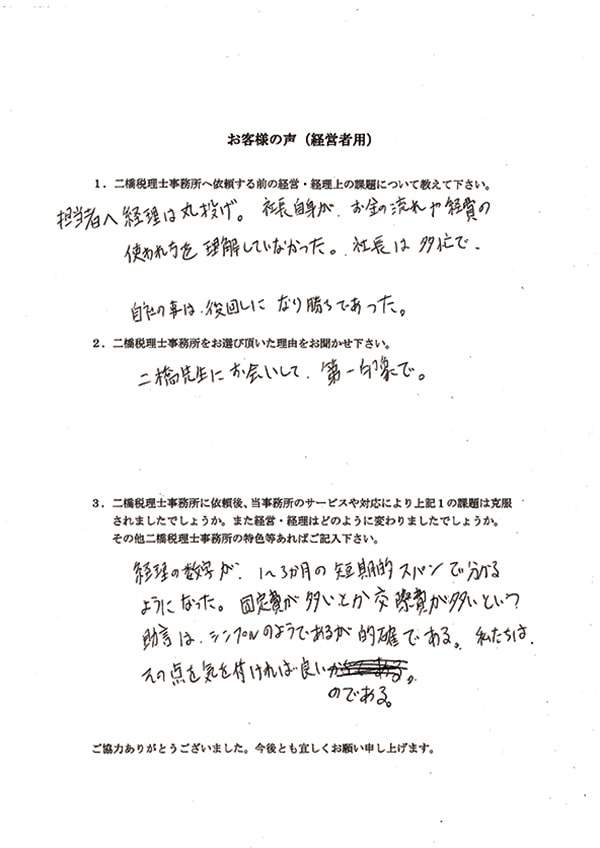 お客様の声（経営者用）
1．二橋税理士事務所へ依頼する前の経営・経理上の課題について教えて下さい。
担当者へ経理は丸投げ。社長自身が、お金の流れや経費の
使われ方を理解していなかった。社長は多忙で、
自社の事は、後回しになり勝ちであった。
2．二橋税理士事務所をお選び頂いた理由をお聞かせ下さい。
二橋先生にお会いして、第一印象で。
3．二橋税理士事務所に依頼後、当事務所のサービスや対応により上記1の課題は克服
されましたでしょうか。また経営・経理はどのように変わりましたでしょうか。
その他二橋税理士事務所の特色等あればご記入下さい。
経理の数字が、1〜3か月の短期的スパンで分かる
ようになった。固定費が多いとか交際費が多いという
助言は、シンプルのようであるが的確である。私たちは、
その点を気を付ければ良い
のである。
ご協力ありがとうございました。今後とも宜しくお願い申し上げます。